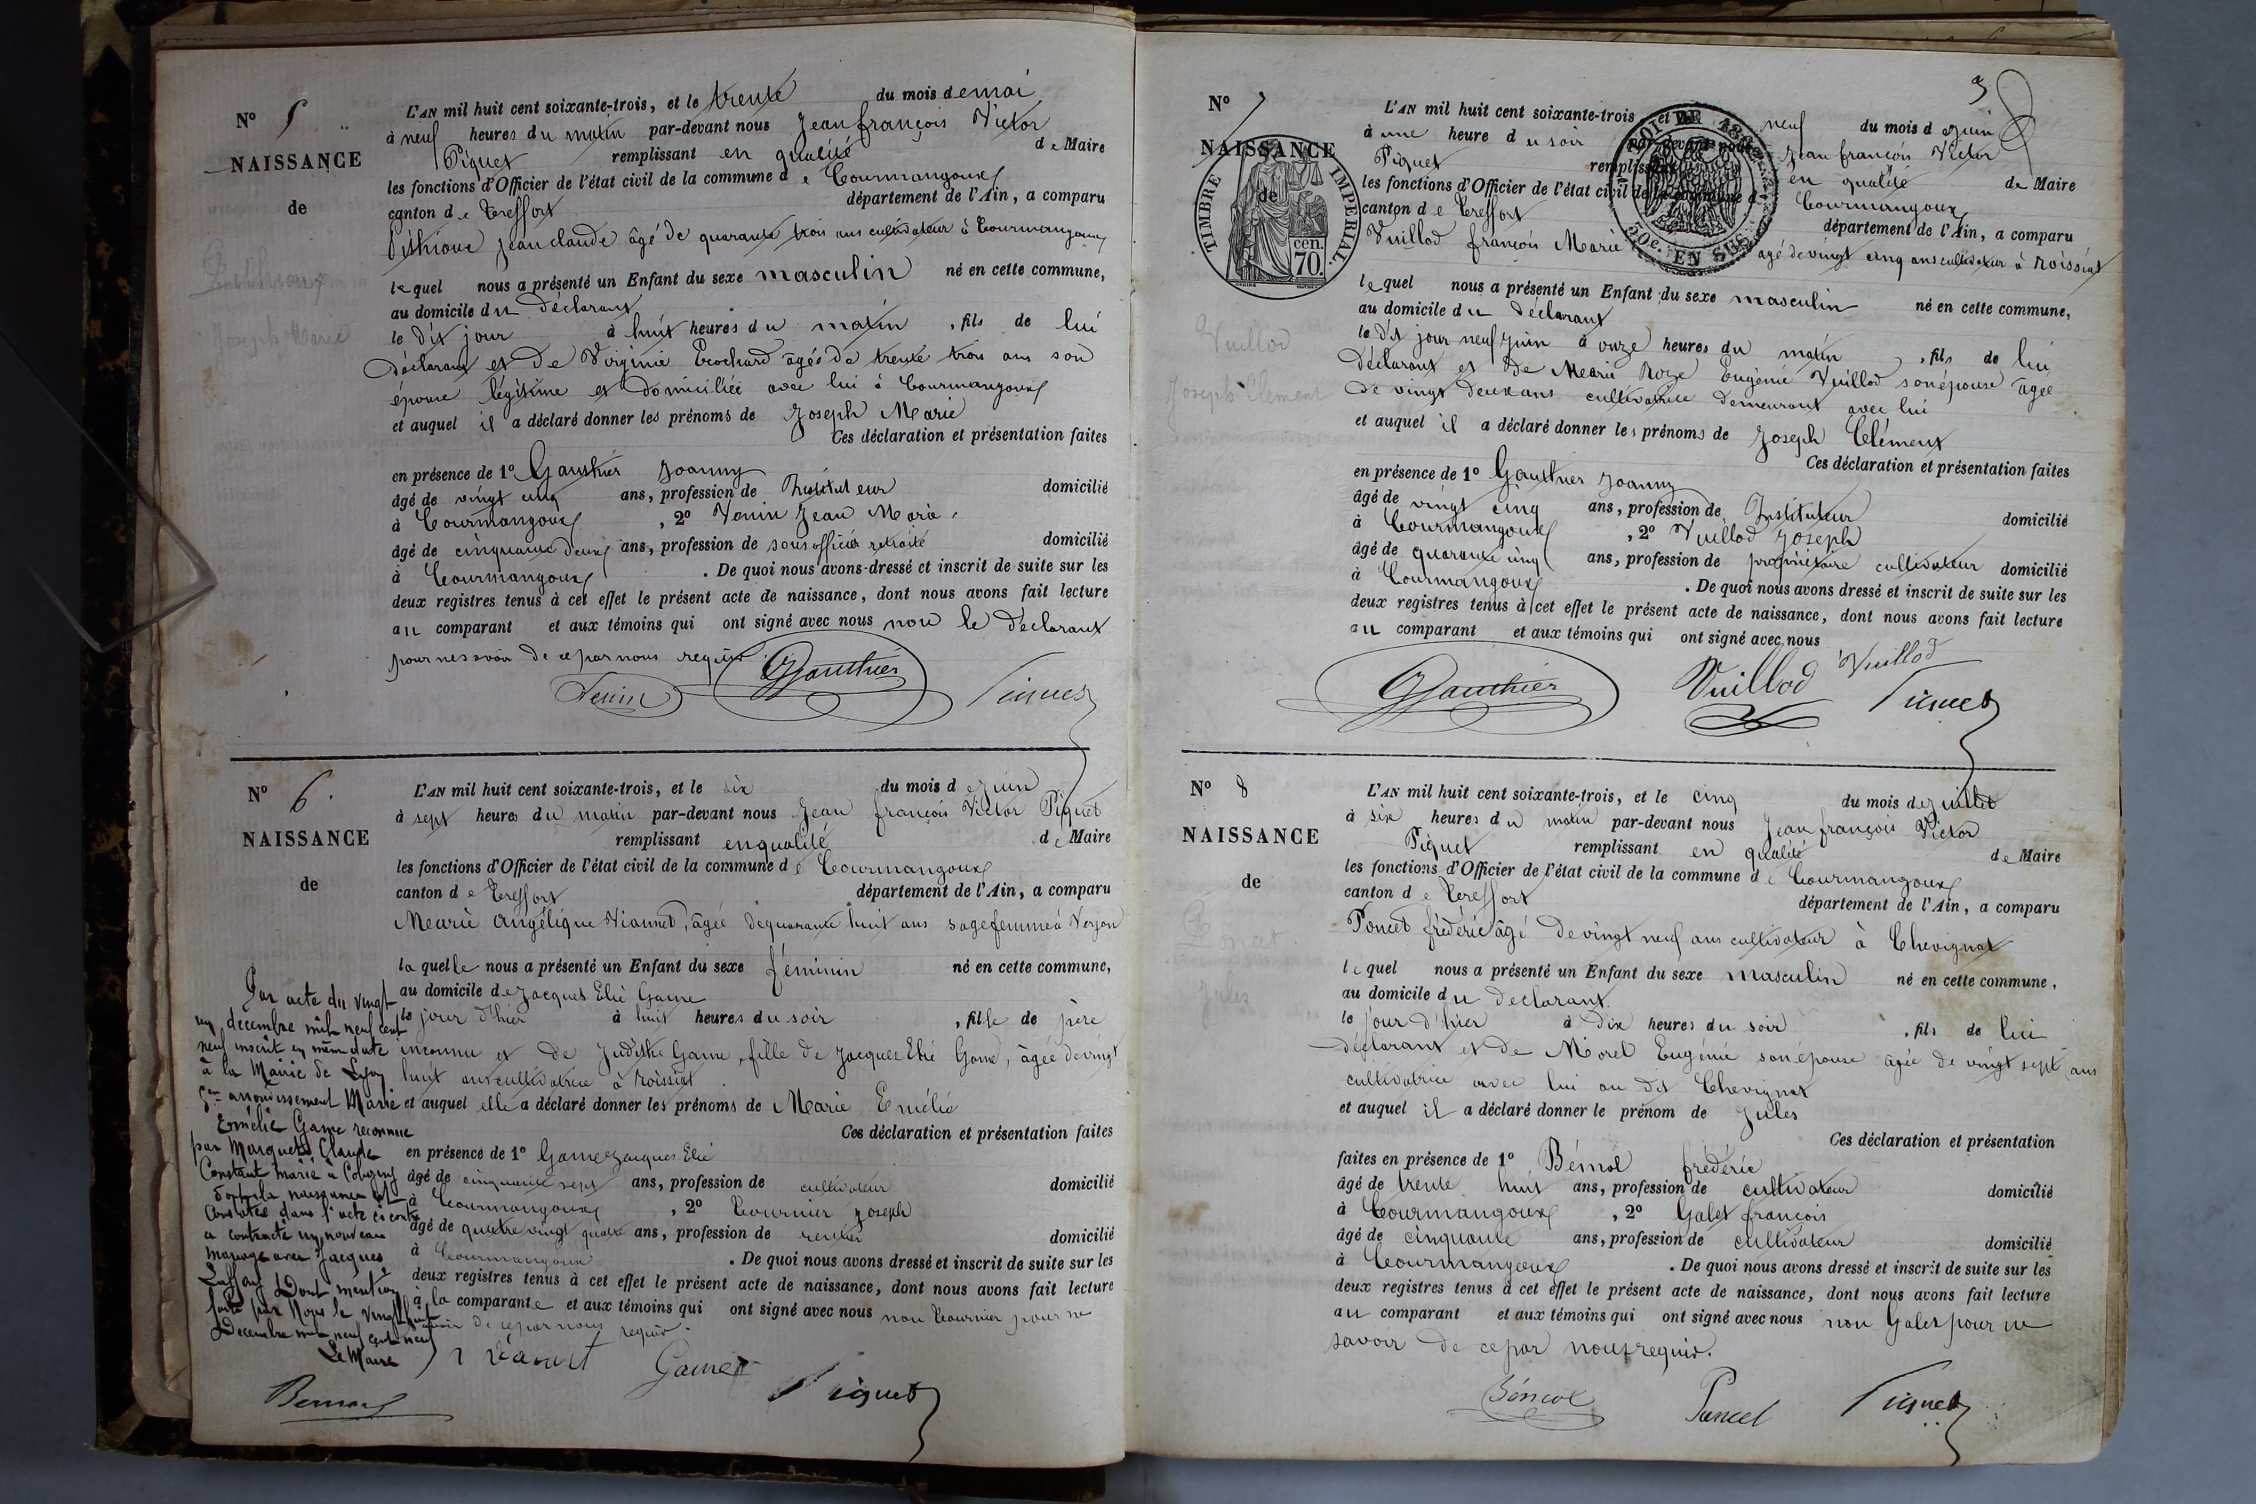 N° 5
NAISSANCE
de
Joseph Marie
L'AN mil huit cent soixante-trois, et le trente du mois de mai
à neuf heures du matin par-devant nous Jean françois Victor
Piquet remplissant en qualité de Maire
les fonctions d'Officier de l'état civil de la commune de Courmangoux
canton de Treffort département de l'Ain, a comparu
jean claude âgé de quarante trois ans cultivateur à Courmangoux
lequel nous a présenté un Enfant du sexe masculin né en cette commune,
au domicile du déclarant
le dit jour à huit heures du matin, fils de lui
déclarant et de Virginie âgée de trente trois ans son
épouse légitime et domiciliée avec lui à Courmangoux
et auquel il a déclaré donner les prénoms de Joseph Marie
Ces déclaration et présentation faites
en présence de 1° Gauthier Joanny
âgé de vingt cinq ans, profession de Instituteur domicilié
à Courmangoux, 2° Venin Jean Marie
âgé de cinquante deux ans, profession de sous officier retraité domicilié
à Courmangoux. De quoi nous avons dressé et inscrit de suite sur les
deux registres tenus à cet effet le présent acte de naissance, dont nous avons fait lecture
au comparant et aux témoins qui ont signé avec nous non le déclarant
pour ne savoir de ce par nous requis
Venin Gauthier Piquet
N° 6.
NAISSANCE
de
L'AN mil huit cent soixante-trois, et le six du mois de juin
à sept heures du matin par-devant nous Jean françois Victor Piquet
remplissant en qualité de Maire
les fonctions d'Officier de l'état civil de la commune de Courmangoux
canton de Treffort département de l'Ain, a comparu
Marie Angélique Vionnet, âgée de quarante huit ans sage femme à Verjon
laquelle nous a présenté un Enfant du sexe féminin né en cette commune,
au domicile de Jacques Elié Game
le jour d'hier à huit heures du soir, fille de père
inconnu et de Judith Game, fille de Jacques Elié Game, âgée de vingt
huit ans cultivatrice à Roissiat
et auquel elle a déclaré donner les prénoms de Marie Emélie
Ces déclaration et présentation faites
en présence de 1° Game Jacques Elié
âgé de cinquante sept ans, profession de cultivateur domicilié
à Courmangoux, 2° Tournier Joseph
âgé de quatre vingt quatre ans, profession de rentier domicilié
à Courmangoux. De quoi nous avons dressé et inscrit de suite sur les
deux registres tenus à cet effet le présent acte de naissance, dont nous avons fait lecture
à la comparante et aux témoins qui ont signé avec nous non Tournier pour ne
savoir de ce par nous requis.
Game Piquet
Par acte du vingt
un décembre mil neuf cent
neuf inscrit en même date
à la Mairie de Lyon
arrondissement Marie
Emélie Game reconnue
par Marquets Claude
Constant marié à Coligny
dont la naissance est
constatée dans l'acte ci contre
a contracté un nouveau
mariage avec Jacques
Dont mention
faite par Nous le vingt huit
Décembre mil neuf cent neuf
Le Maire
Bernard
3
N° 7
NAISSANCE
de
TIMBRE IMPERIAL.
70 cen.
50c. EN SUS
Vuillod
Joseph Clément
L'AN mil huit cent soixante-trois, et le neuf du mois de juin
à une heure du soir par-devant nous Jean françois Victor
Piquet remplissant en qualité de Maire
les fonctions d'Officier de l'état civil de la commune de Courmangoux
canton de Treffort département de l'Ain, a comparu
Vuillod françois Marie âgé de vingt cinq ans cultivateur à Roissiat
lequel nous a présenté un Enfant du sexe masculin né en cette commune,
au domicile du déclarant
le dit jour neuf juin à onze heures du matin, fils de lui
déclarant et de Marie Roze Eugénie Vuillod son épouse âgée
de vingt deux ans cultivatrice demeurant avec lui
et auquel il a déclaré donner les prénoms de Joseph Clément
Ces déclaration et présentation faites
en présence de 1° Gauthier Joanny
âgé de vingt cinq ans, profession de Instituteur domicilié
à Courmangoux, 2° Vuillod Joseph
âgé de quarante cinq ans, profession de propriétaire cultivateur domicilié
à Courmangoux. De quoi nous avons dressé et inscrit de suite sur les
deux registres tenus à cet effet le présent acte de naissance, dont nous avons fait lecture
au comparant et aux témoins qui ont signé avec nous
Gauthier Vuillod Vuillod Piquet
N° 8
NAISSANCE
de
Poncet
Jules
L'AN mil huit cent soixante-trois, et le cinq du mois de juillet
à six heures du matin par-devant nous Jean françois Victor
Piquet remplissant en qualité de Maire
les fonctions d'Officier de l'état civil de la commune de Courmangoux
canton de Treffort département de l'Ain, a comparu
Poncet frédéric âgé de vingt neuf ans cultivateur à Chevignat
lequel nous a présenté un Enfant du sexe masculin né en cette commune,
au domicile du declarant
le jour d'hier à dix heures du soir, fils de lui
déclarant et de Morel Eugénie son épouse âgée de vingt sept ans
cultivatrice avec lui au dit Chevignat
et auquel il a déclaré donner le prénom de Jules
Ces déclaration et présentation
faites en présence de 1° Bémol frédéric
âgé de trente huit ans, profession de cultivateur domicilié
à Courmangoux, 2° Galet françois
âgé de cinquante ans, profession de cultivateur domicilié
à Courmangoux. De quoi nous avons dressé et inscrit de suite sur les
deux registres tenus à cet effet le présent acte de naissance, dont nous avons fait lecture
au comparant et aux témoins qui ont signé avec nous non Galet pour ne
savoir de ce par nous requis.
Poncet Piquet